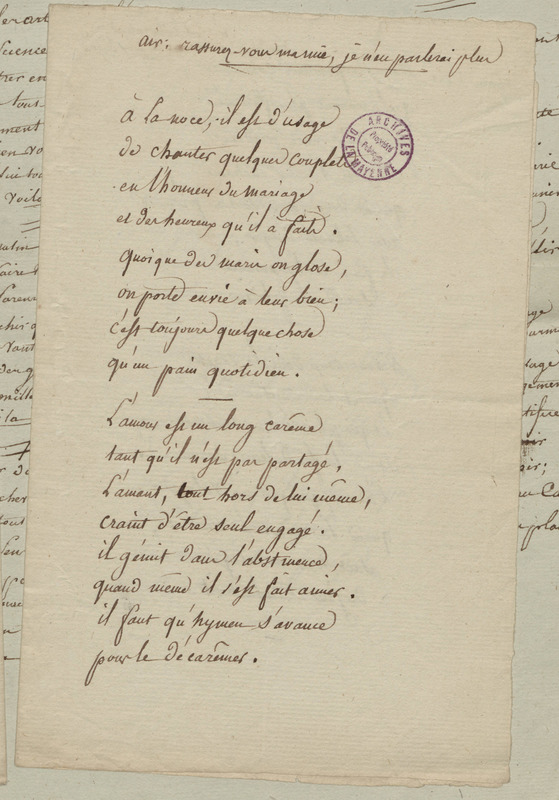 air: rassurez-vous ma mie, je n'en parlerai plus
à la noce, il est d'usage
de chanter quelques couplets
en l'honneur du mariage
et des heureux qu'il a faits.
quoique des maris on glose,
on porte envie à leur bien;
c'est toujours quelque chose
qu'un pain quotidien.
L'amour est un long carême
tant qu'il n'est pas partagé,
L'amant, tout hors de lui même,
craint d'être seul engagé.
il gémit dans l'abstinence,
quand même il s'est fait aimer.
il faut qu'hymen s'avance
pour le décarêmer.
ARCHIVES
DE LA MAYENNE